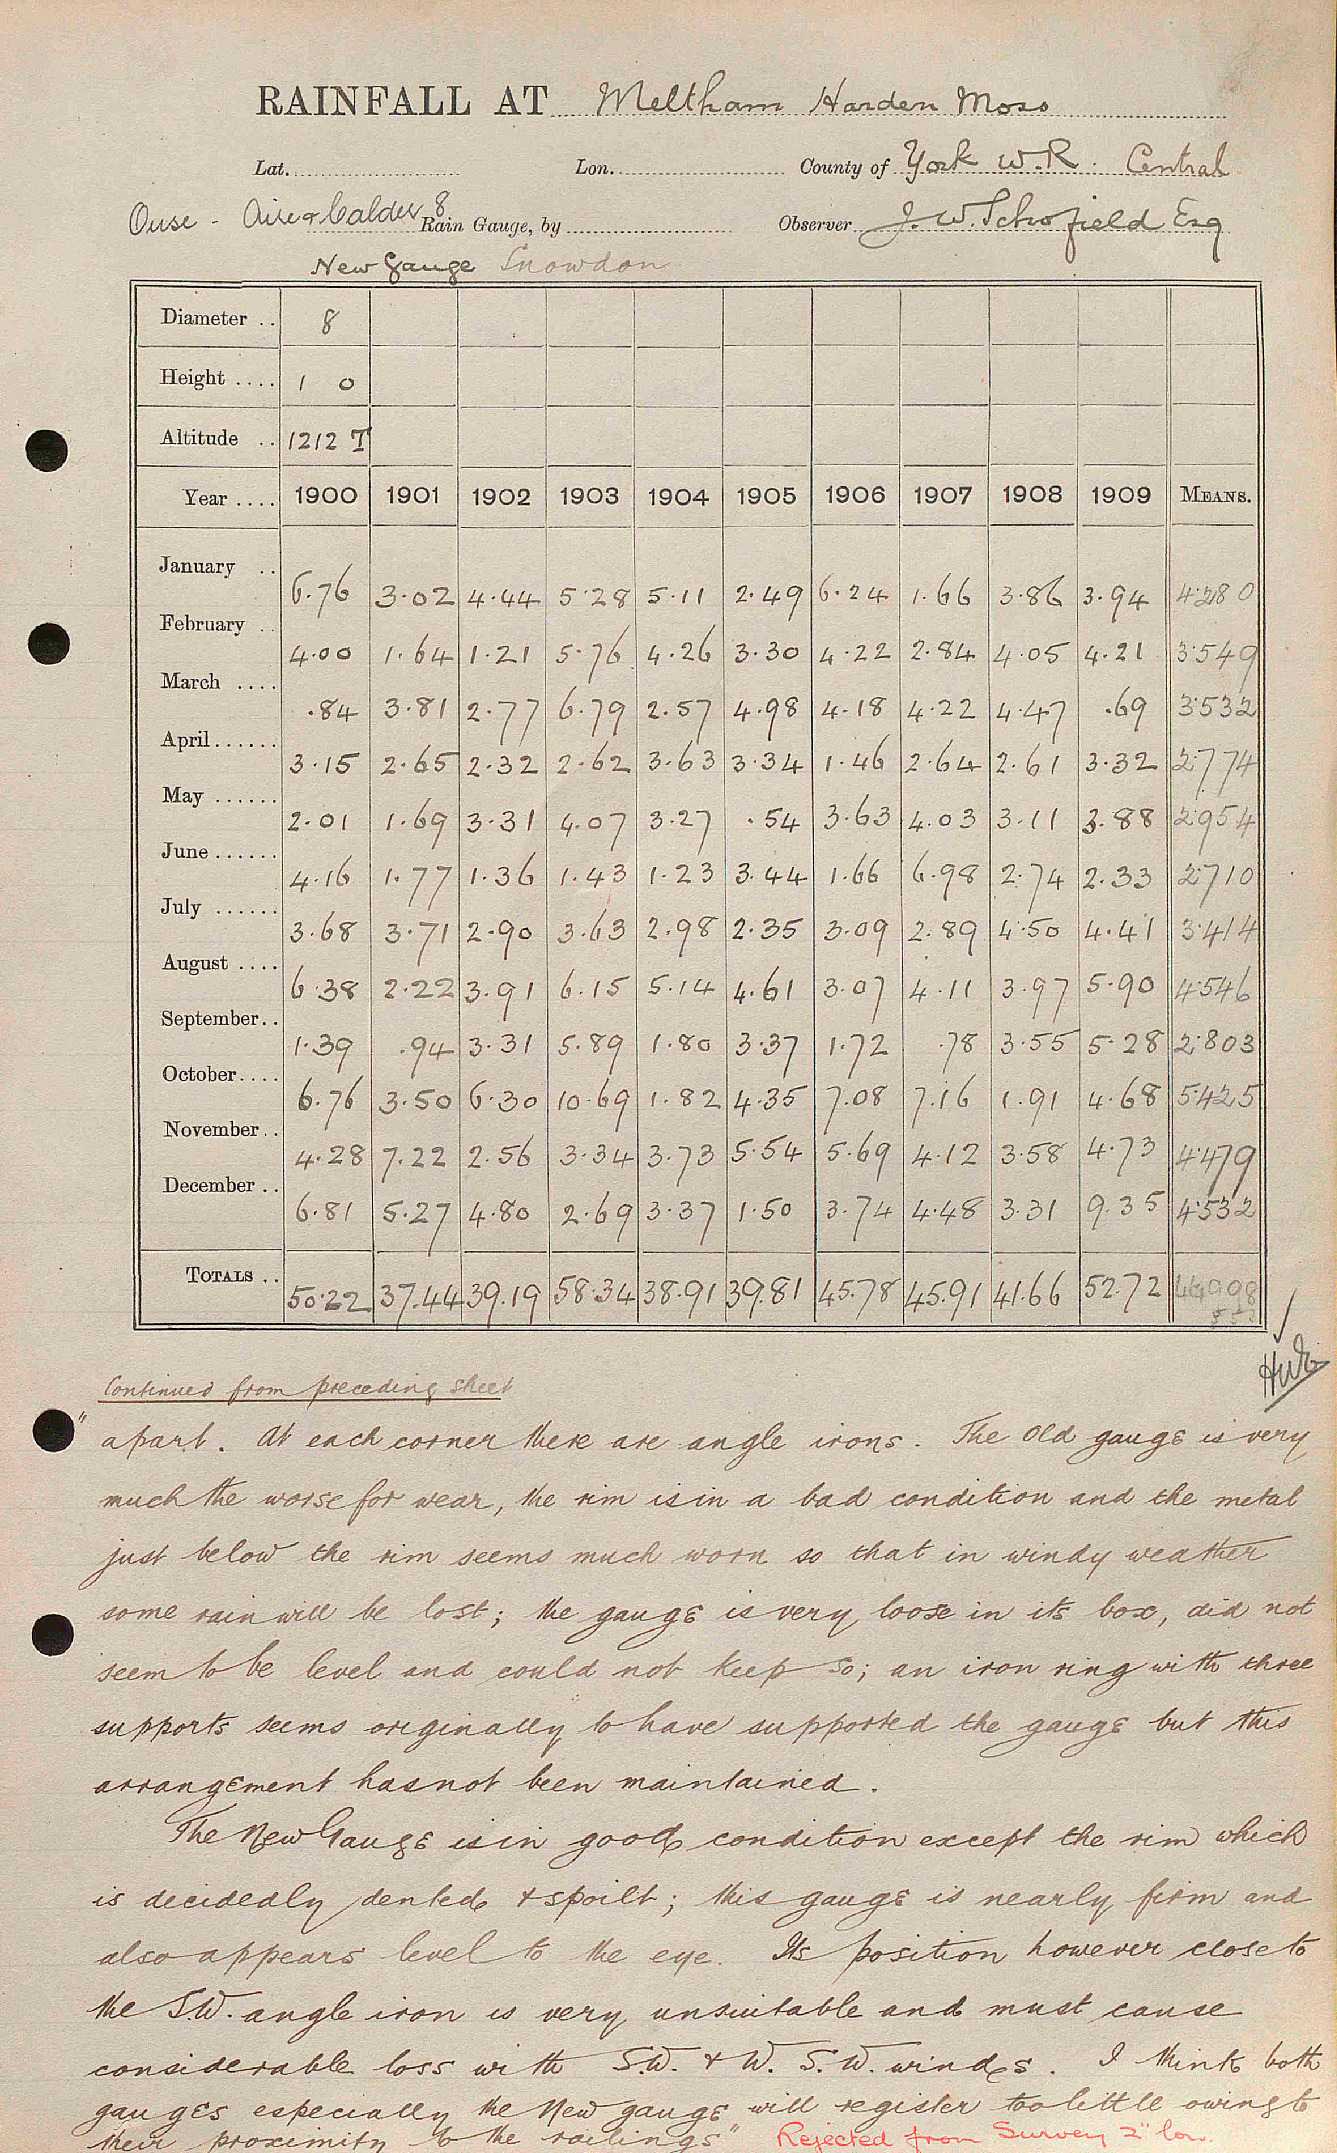 RAINFALL AT Meltham Harden Moss
Lat. Lon. County of York W.R. Central
Ouse - Aire & Calder 8 Rain Gauge, by Observer J. W. Schofield Esq
New Gauge Snowdon
Diameter .. 8
Height .... 1 0
Altitude .. 1212 T
Year .... 1900 1901 1902 1903 1904 1905 1906 1907 1908 1909 MEANS.
January .. 6.76 3.02 4.44 5.28 5.11 2.49 6.24 1.66 3.86 3.94 4.280
February .. 4.00 1.64 1.21 5.76 4.26 3.30 4.22 2.84 4.05 4.21 3.549
March .... .84 3.81 2.77 6.79 2.57 4.98 4.18 4.22 4.47 .69 3.532
April ...... 3.15 2.65 2.32 2.62 3.63 3.34 1.46 2.64 2.61 3.32 2.774
May ...... 2.01 1.69 3.31 4.07 3.27 .54 3.63 4.03 3.11 3.88 2.954
June ...... 4.16 1.77 1.36 1.43 1.23 3.44 1.66 6.98 2.74 2.33 2.710
July ...... 3.68 3.71 2.90 3.63 2.98 2.35 3.09 2.89 4.50 4.41 3.414
August .... 6.38 2.22 3.91 6.15 5.14 4.61 3.07 4.11 3.97 5.90 4.546
September .. 1.39 .94 3.31 5.89 1.80 3.37 1.72 .78 3.55 5.28 2.803
October .... 6.76 3.50 6.30 10.69 1.82 4.35 7.08 7.16 1.91 4.68 5.425
November .. 4.28 7.22 2.56 3.34 3.73 5.54 5.69 4.12 3.58 4.73 4.479
December .. 6.81 5.27 4.80 2.69 3.37 1.50 3.74 4.48 3.31 9.35 4.532
TOTALS .. 50.22 37.44 39.19 58.34 38.91 39.81 45.78 45.91 41.66 52.72 44.998
Continued from preceding sheet
" apart. At each corner there are angle irons. The Old gauge is very
much the worse for wear, the rim is in a bad condition and the metal
just below the rim seems much worn so that in windy weather
some rain will be lost; the gauge is very loose in its box, did not
seem to be level and could not keep so; an iron ring with three
supports seems originally to have supported the gauge but this
arrangement has not been maintained.
The New Gauge is in good condition except the rim which
is decidedly dented & spoilt; this gauge is nearly firm and
also appears level to the eye. Its position however close to
the S.W. angle iron is very unsuitable and must cause
considerable loss with S.W. & W. S. W. winds. I think both
gauges especially the New gauge will register too little owing to
their proximity to the railings" Rejected from Survey 2" low.